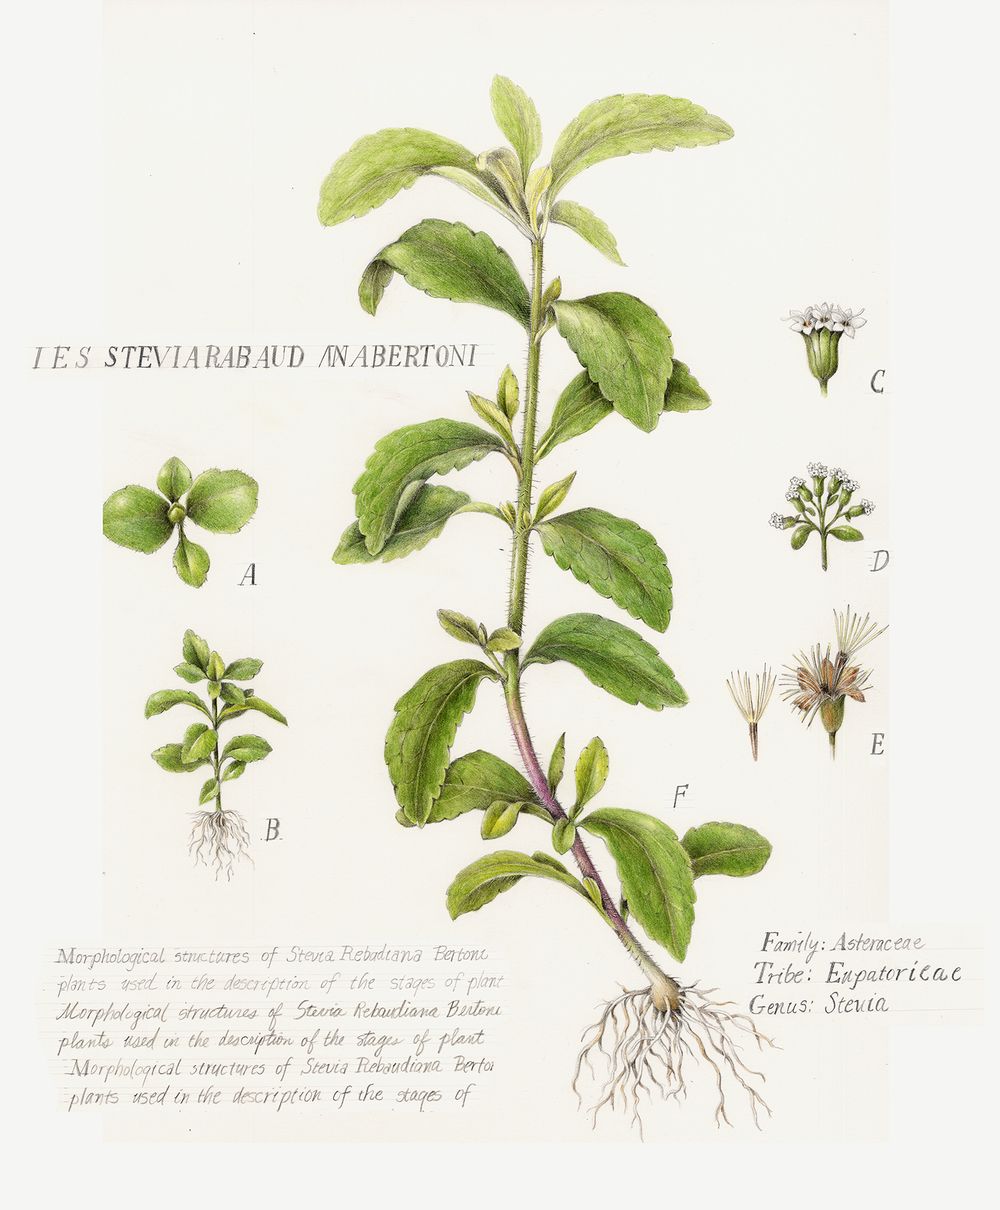 IES STEVIARABAUD ANABERTONI
A
B
C
D
E
F
Morphological structures of Stevia Rebadiana Bertoni
plants used in the description of the stages of plant
Morphological structures of Stevia Rebaudiana Bertoni
plants used in the description of the stages of plant
Morphological structures of Stevia Rebaudiana Berto
plants used in the description of the stages of
Family: Asteraceae
Tribe: Eupatorieae
Genus: Stevia